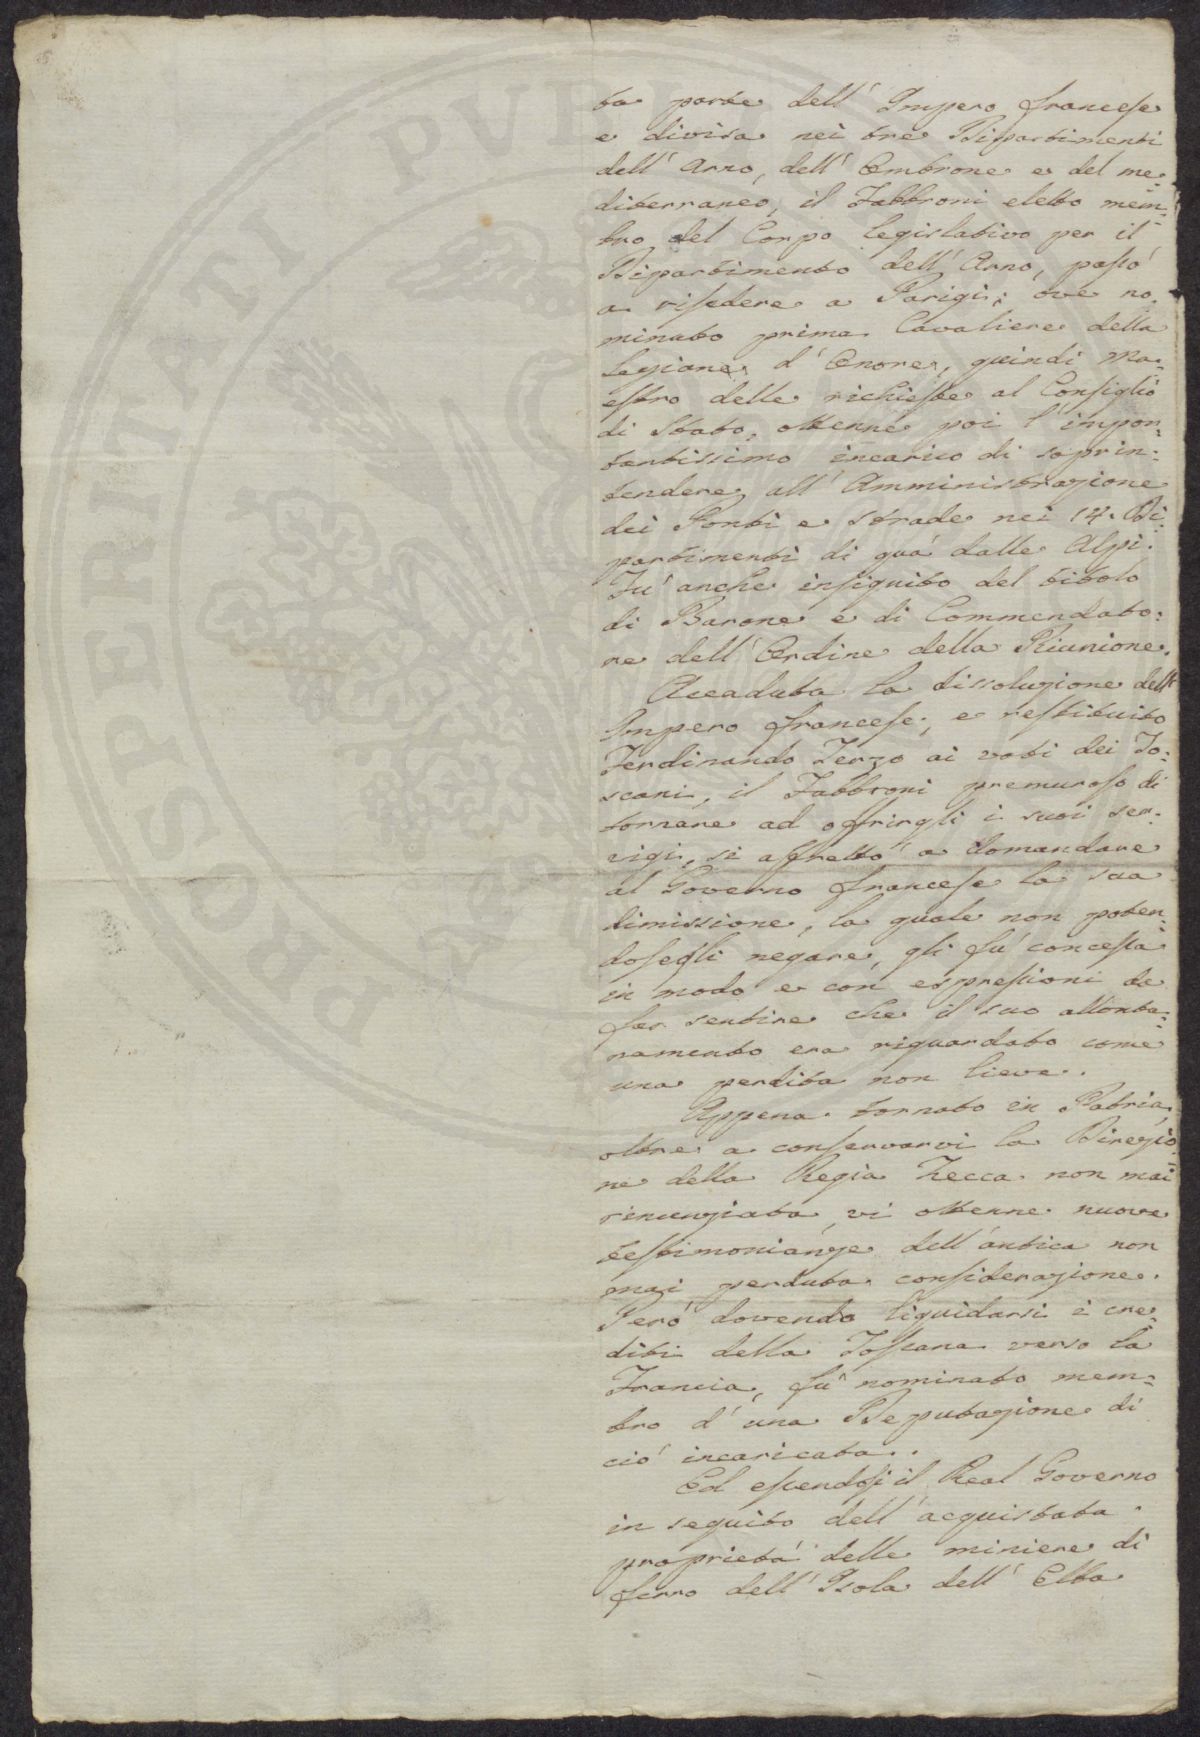 ta parte dell' Impero francese
e divisa nei tre Dipartimenti
dell' Arno, dell' Ombrone e del me-
diterraneo, il Fabbroni eletto mem-
bro del Corpo legislativo per il
Dipartimento dell' Arno, passò
a risedere a Parigi; ove no-
minato prima Cavaliere della
Legione d' Onore, quindi Ma-
estro delle richieste al Consiglio
di Stato, ottenne poi l' impor-
tantissimo incarico di soprin-
tendere all' Amministrazione
dei Ponti e strade nei 14. Di-
partimenti di quà dalle Alpi.
Fù anche insignito del titolo
di Barone e di Commendato-
re dell' Ordine della Riunione.
Accaduta la dissoluzione dell'
Impero francese, e restituito
Ferdinando Terzo ai voti dei To-
scani, il Fabbroni premuroso di
tornare ad offrirgli i suoi ser-
vigi, si affrettò a domandare
al Governo francese la sua
dimissione, la quale non poten-
dosegli negare, gli fù concessa
in modo e con espressioni da
far sentire che il suo allonta-
namento era riguardato come
una perdita non lieve.
Appena tornato in Patria,
oltre a conservarvi la Direzio-
ne della Regia Zecca non mai
rinunziata, vi ottenne nuove
testimonianze dell' antica non
mai perduta considerazione.
Però dovendo liquidarsi i cre-
diti della Toscana verso la
Francia, fù nominato mem-
bro d' una Deputazione di
ciò incaricata.
Ed essendosi il Real Governo
in seguito dell' acquistata
proprietà delle miniere di
ferro dell' Isola dell' Elba
PROSPERITATI PVBL